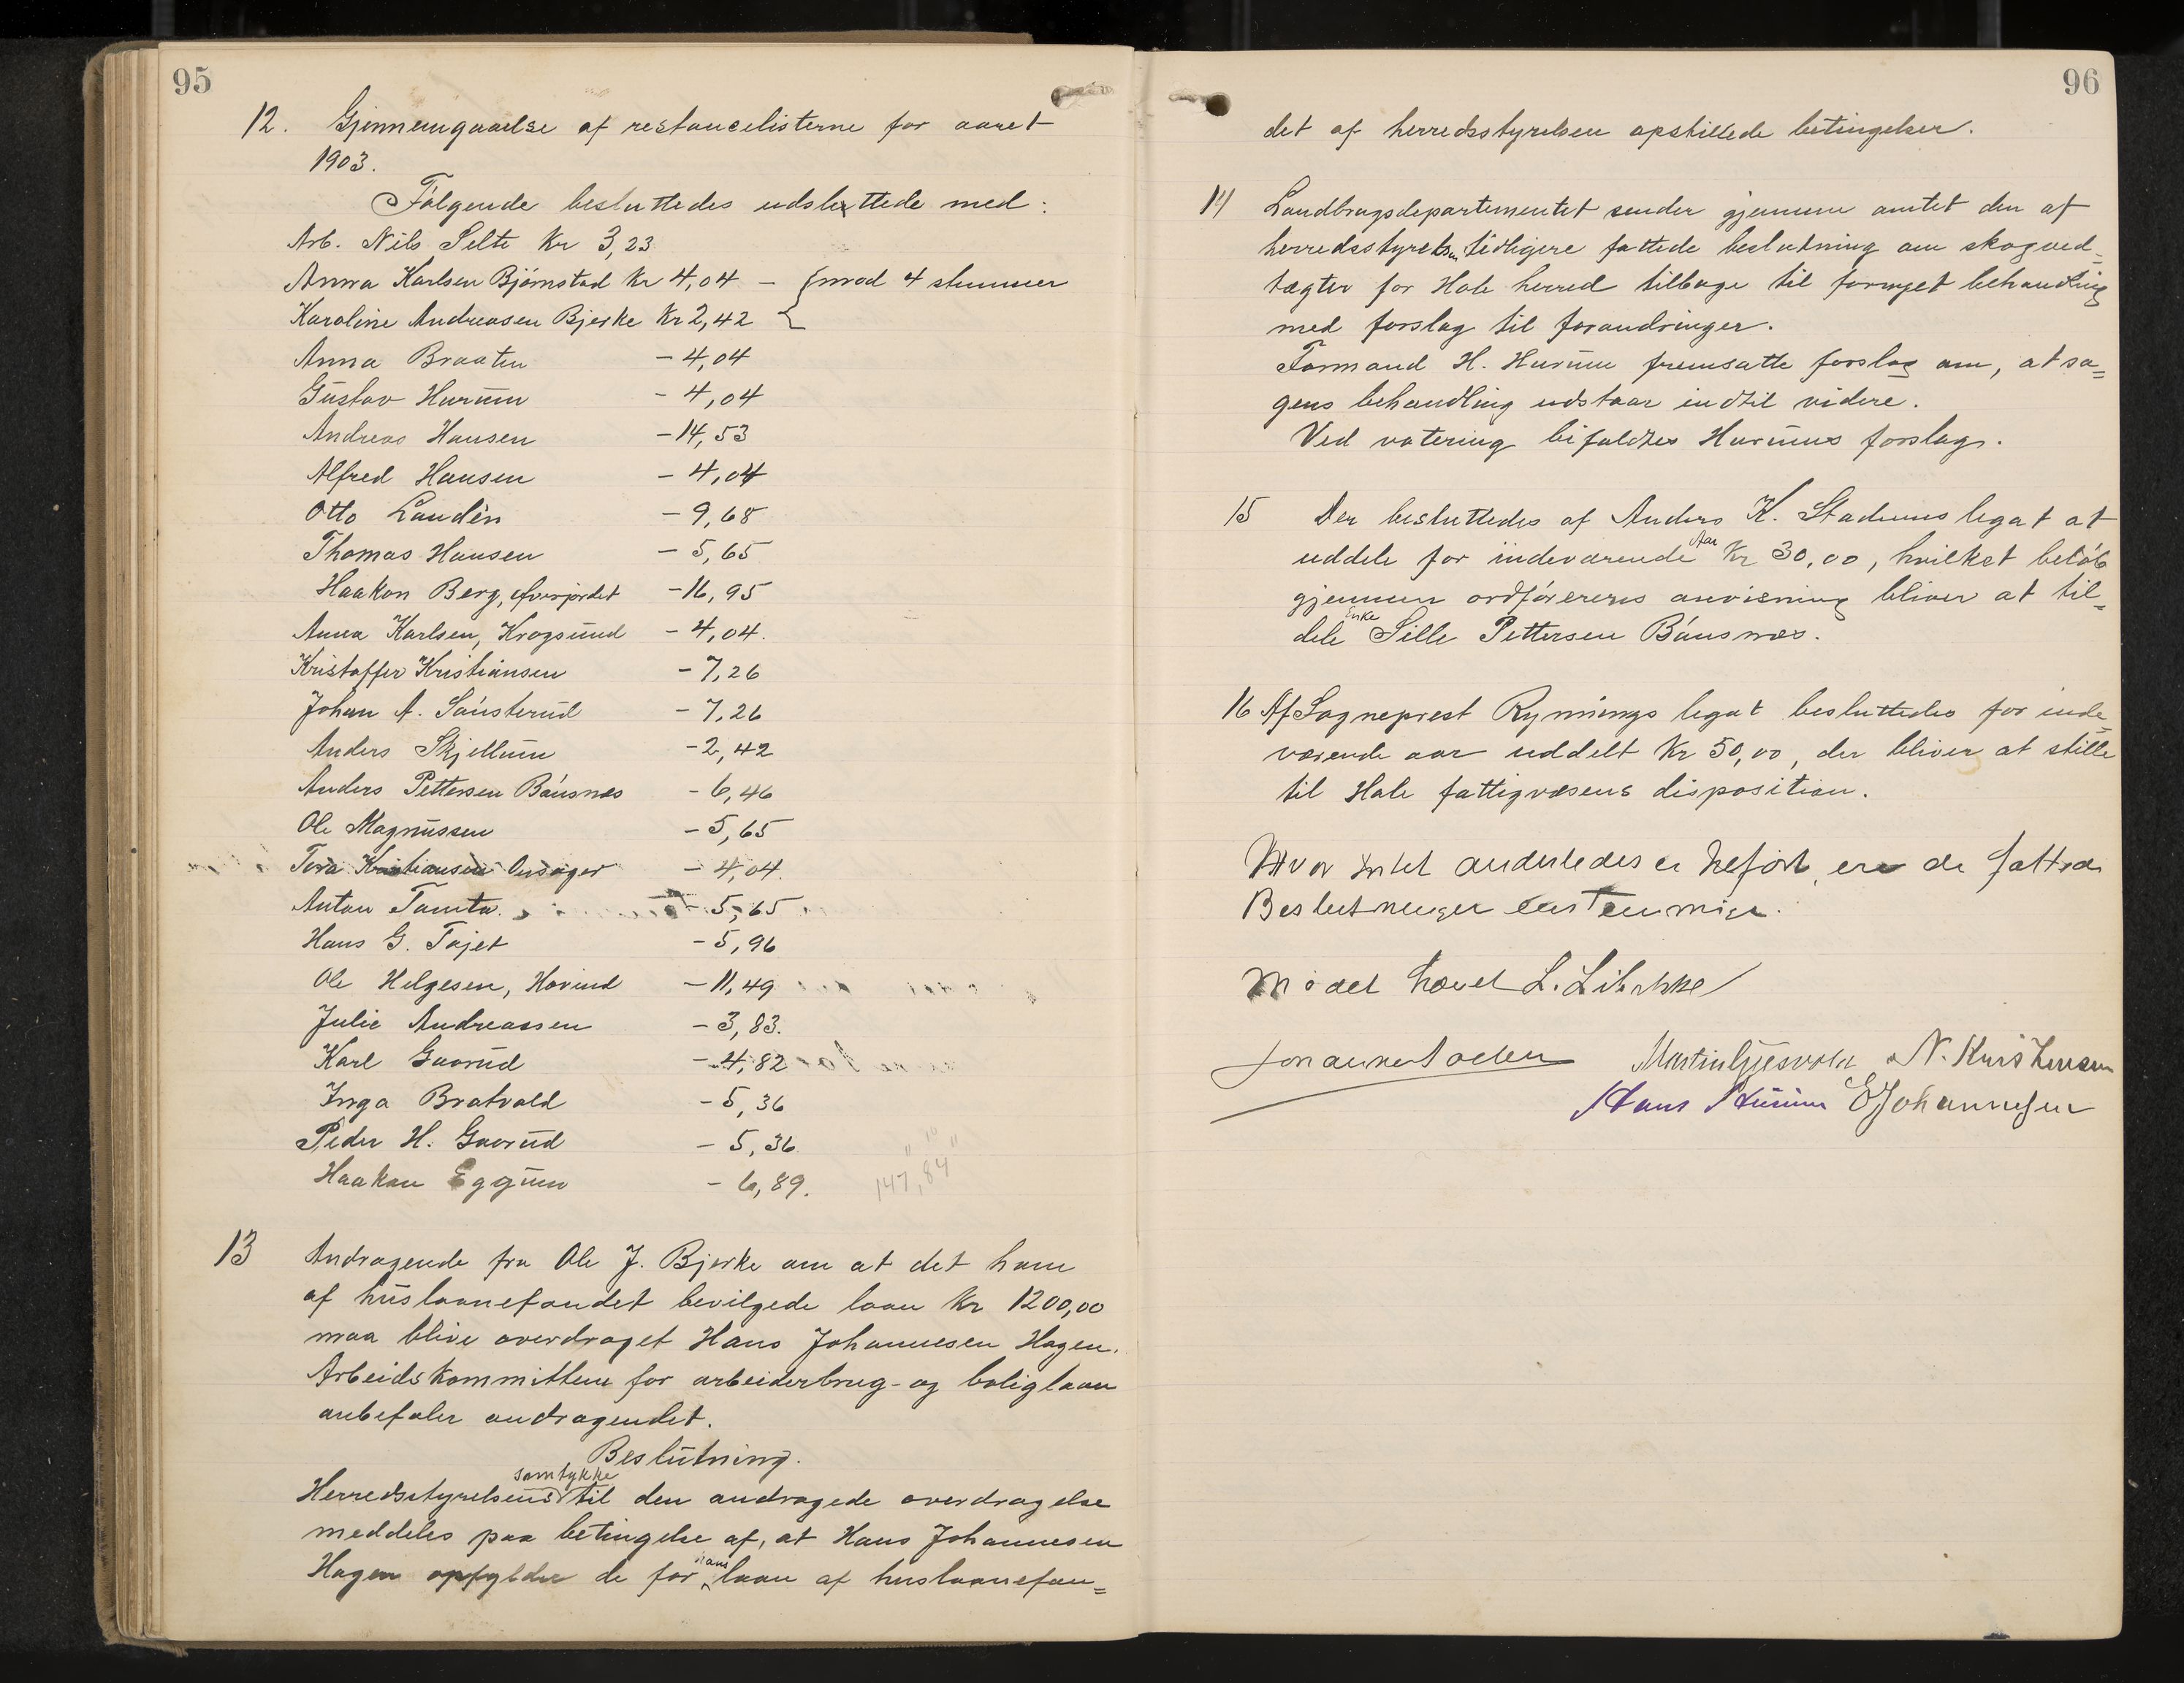 95
12. Gjennemgaaelse af restancelisterne for aaret
1903.
Følgende besluttedes udslettede med:
Arb. Nils Selte Kr 3,23
Anna Karlsen Bjørnstad Kr 4,04 — { mod 4 stemmer
Karoline Andreasen Bjerke Kr 2,42 {
Anna Braaten — 4,04
Gustav Hurum - 4,04
Andreas Hansen — 14,53
Alfred Hansen — 4,04
Otto Landén — 9,68
Thomas Hansen — 5,65
Haakon Berg, — 16,95
Anna Karlsen, Krogsund — 4,04.
Kristoffer Kristiansen — 7,26
Johan A. Sønsterud — 7,26
Anders Skjellum — 2,42
Anders Pettersen Bønsnæs — 6,46
Ole Magnussen — 5,65
Tora Kristiansen Onsager — 4,04.
Anton Tomta. — 5,65
Hans G. Fajet — 5,96
Ole Helgesen, Hovind — 11,49
Julie Andreassen — 3,83.
Karl Gaarud — 4,82
Inga Bratvold — 5,36
Peder H. Gaarud — 5,36
Haakon Eggum — 6,89.
147,84
13 Andragende fra Ole J. Bjerke om at det ham
af huslaanefondet bevilgede laan Kr 1200,00
maa blive overdraget Hans Johannesen Hagen.
Arbeidskommitteen for arbeiderbrug- og boliglaan
anbefaler andragendet.
Beslutning.
Herredsstyrelsens samtykke til den andragede overdragelse
meddeles paa betingelse af, at Hans Johannesen
Hagen opfylder de for hans laan af huslaanefon=
96
det af herredsstyrelsen opstillede betingelser.
14 Landbrugsdepartementet sender gjennem amtet den af
herredsstyrelsen tidligere fattede beslutning om skogved=
tægter for Hole herred tilbage til fornyet behandling
med forslag til forandringer.
Formand H. Hurum fremsatte forslag om, at sa=
gens behandling udstaar indtil videre.
Ved votering bifaldtes Hurums forslag.
15 Der besluttedes af Anders K. Stadums legat at
uddele for indeværende Aar Kr 30,00, hvilket beløb
gjennem ordførerens anvisning bliver at til=
dele Enke Sille Pettersen Bønsnæs.
16 Af Sogneprest Rynnings legat besluttedes for inde=
værende aar uddelt Kr 50,00, der bliver at stille
til Hole fattigvæsens disposition.
Hvor Intet anderledes er tilført, ere de fattede
Beslutninger eenstemmige.
Mødet hævet
Martin Gjesvold N. Kristensen
Hans Hurum E Johannesen